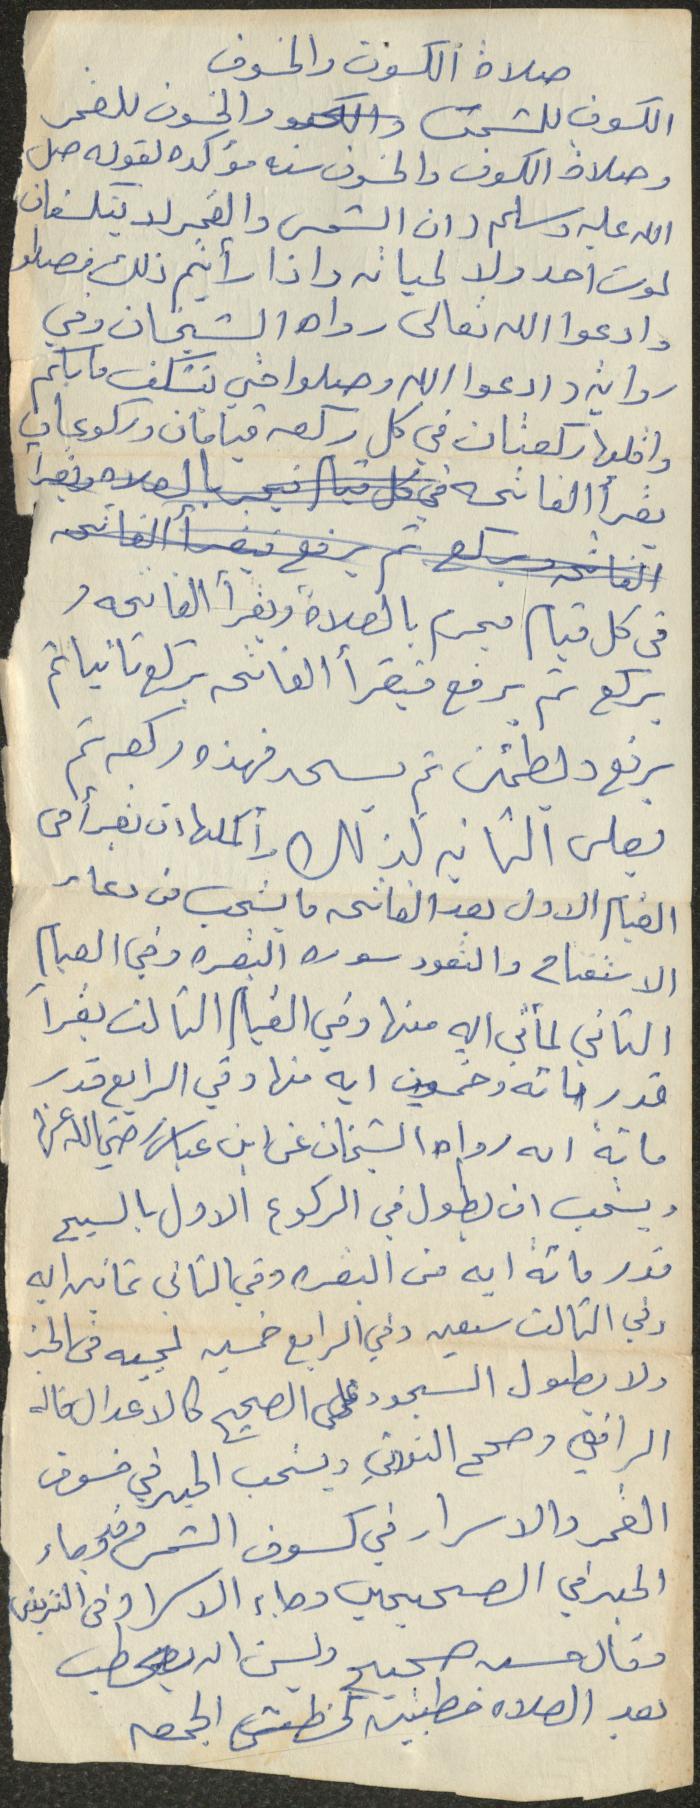 صلاة الكسوف والخسوف
الكسوف للشمس والخسوف للقمر
وصلاة الكسوف والخسوف سنه مؤكده لقوله صلى
الله عليه وسلم ان الشمس والقمر لا ينكسفان
لموت احد ولا لحياته واذا رأيتم ذلك فصلوا
وادعوا الله تعالى رواه الشيخان وفي
رواية وادعوا الله وصلوا حتى ينكشف ما بكم
واقلها ركعتان في كل ركعه قيامان وركوعان
يقرأ الفاتحه في كل قيام فيحرم بالصلاه ويقرأ
الفاتحه ويركع ثم يرفع فيقرأ الفاتحه
في كل قيام فيحرم بالصلاة ويقرأ الفاتحه و
يركع ثم يرفع فيقرأ الفاتحه يركع ثانيا ثم
يرفع ويطمئن ثم يسجد فهذه ركعه ثم
يصلى الثانيه كذلك وأكملها ان يقرأ في
القيام الاول بعد الفاتحه ما يستحب من دعاء
الاستفتاح والتعوذ سورة البقره وفي القيام
الثاني كمأتي ايه منها وفي القيام الثالث يقرأ
قدر مائه وخمسين ايه منها وفي الرابع قدر
مائة ايه رواه الشيخان عن ابن عباس رضي الله عنهما
ويستحب ان يطول في الركوع الاول بالتسبيح
قدر مائة ايه من البقره وفي الثاني ثمانين ايه
وفي الثالث سبعين وفي الرابع خمسين لمجيئه في الخبر
ولا يطول السجود على الصحيح كالاعتدال قاله
الرافعي وصحح النووي ويستحب الجهر في خسوف
القمر والاسرار في كسوف الشمس فقد جاء
الجهر في الصحيحين وجاء الاسرار في الترمذي
وقال حسن صحيح ويسن ان يخطب
بعد الصلاه خطبتين كخطبتي الجمعه